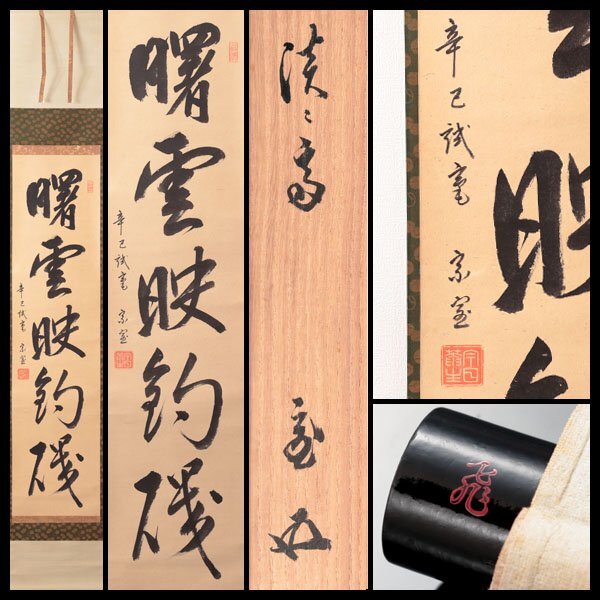 曙雲映釣磯
辛巳試毫 宗室
曙雲映釣磯
辛巳試毫 宗室
淡々斎
映
辛巳試毫 宗室